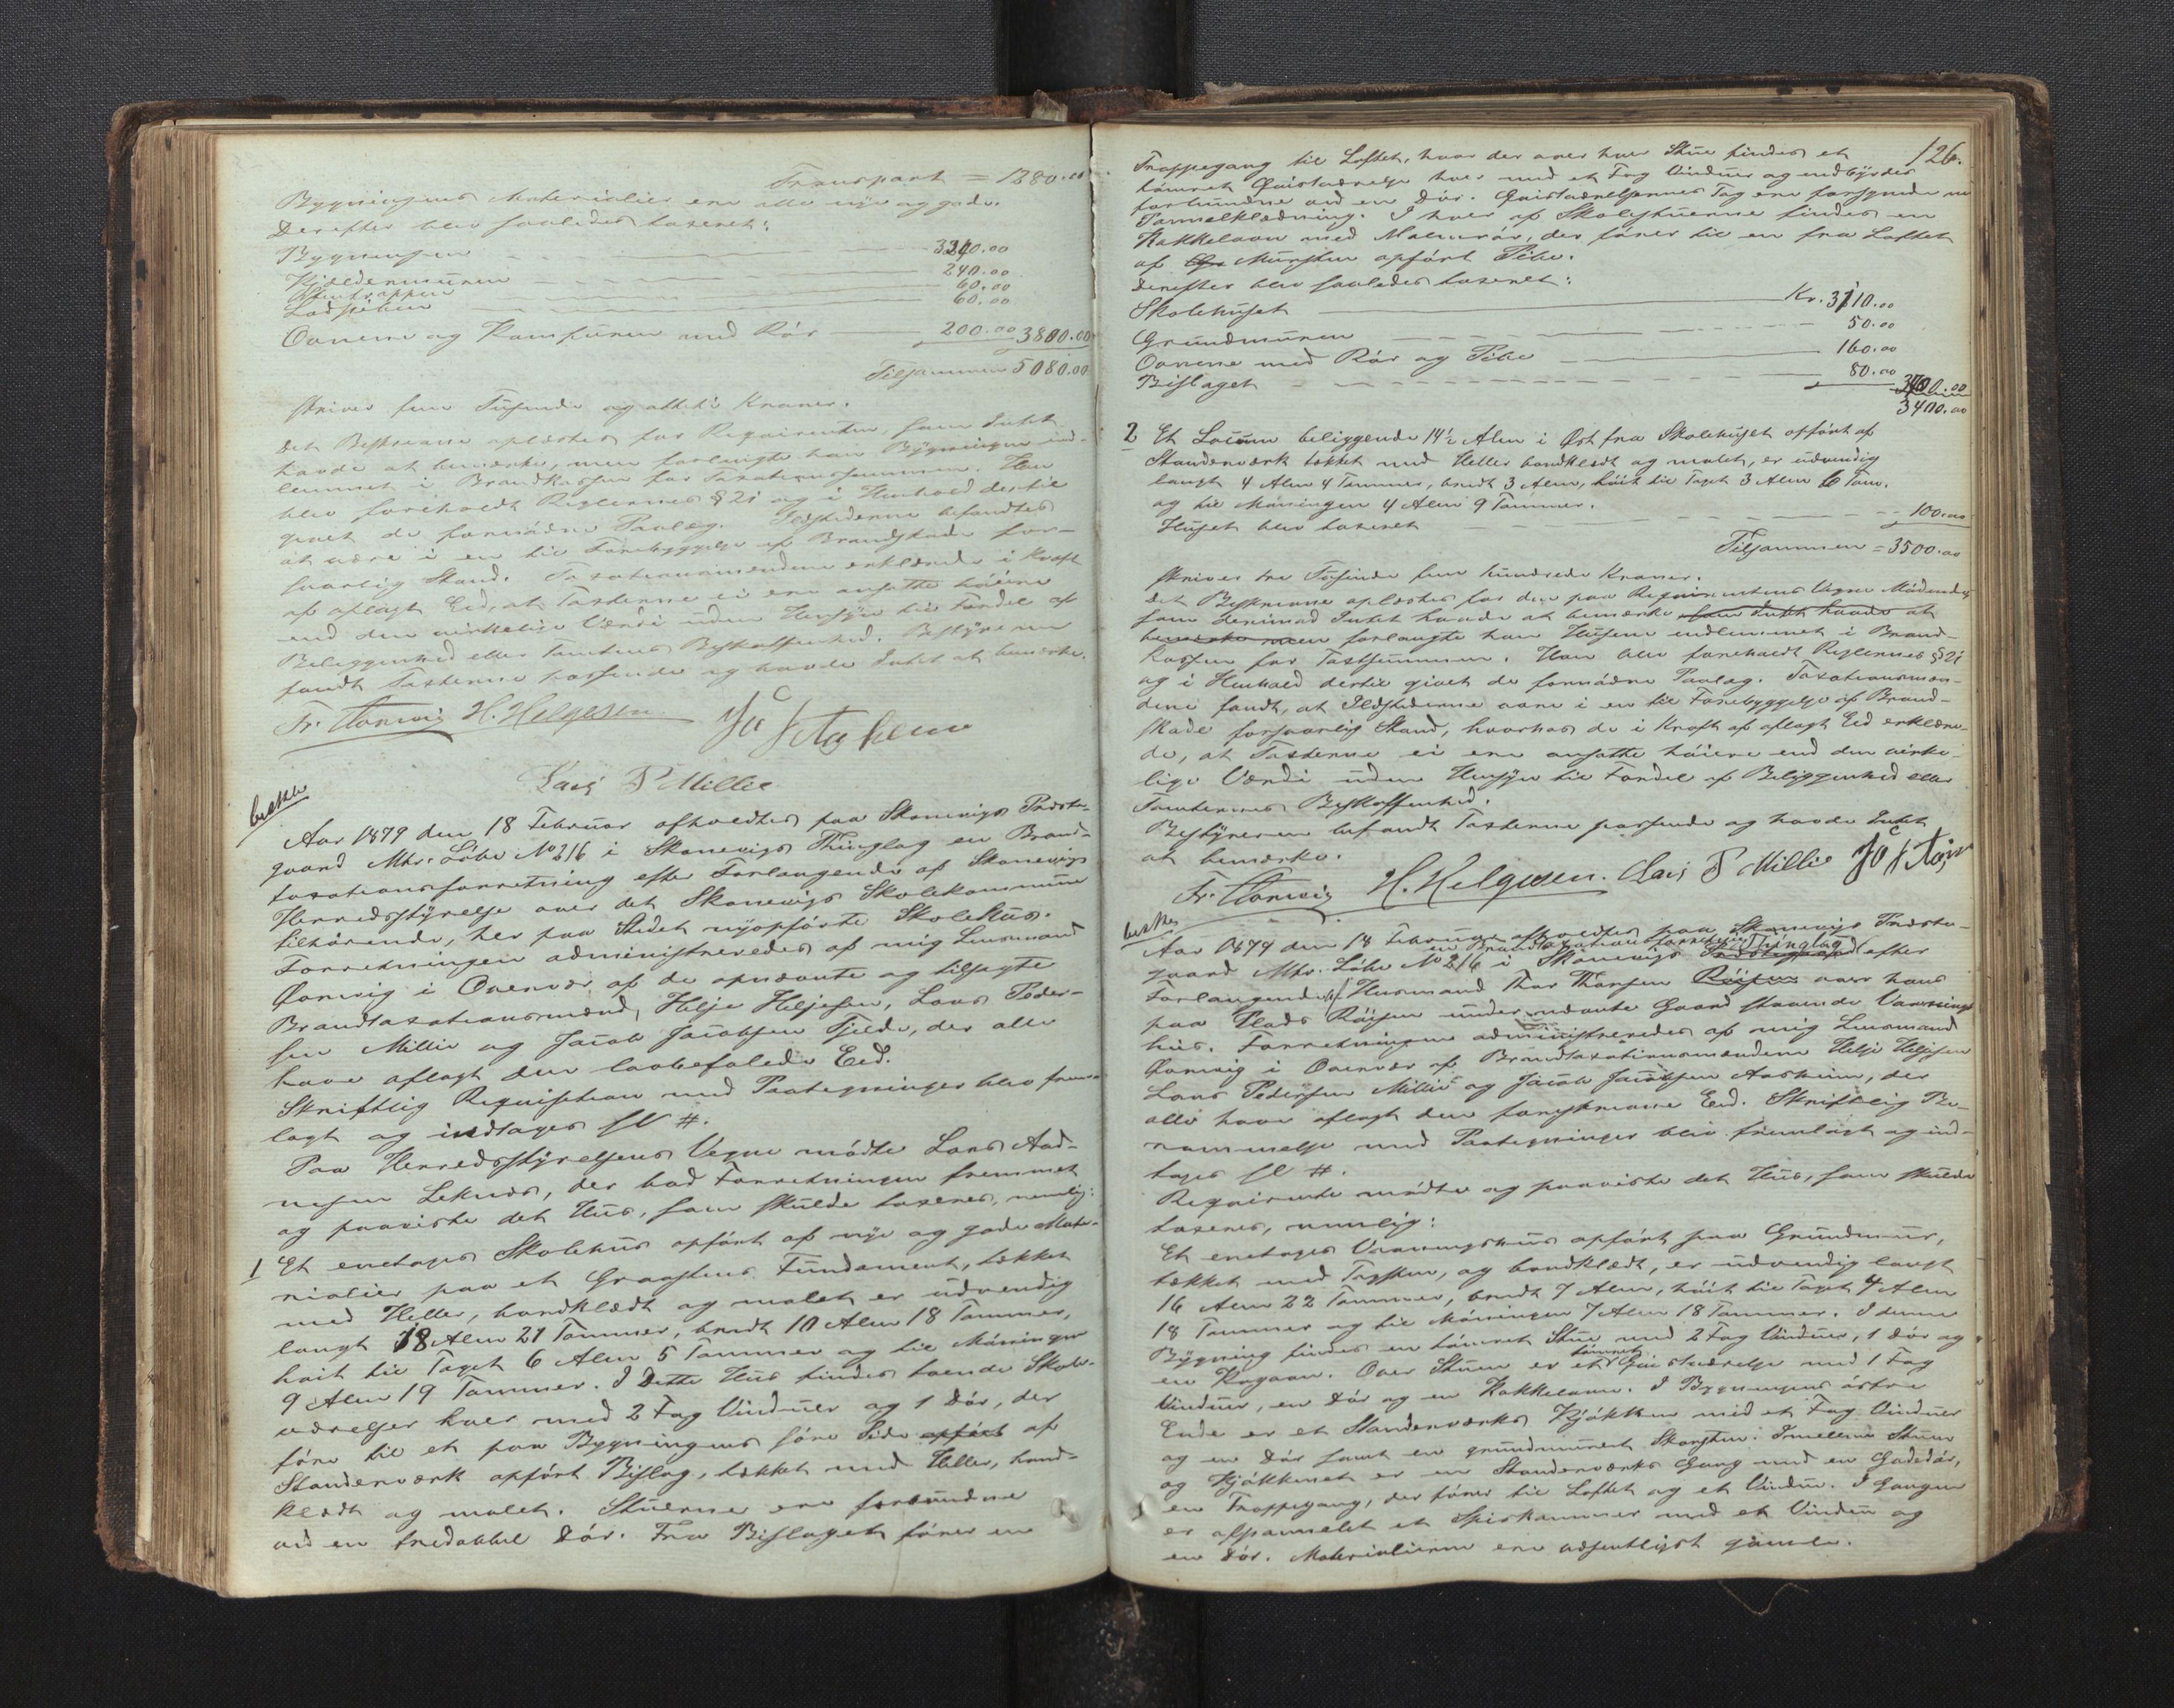 Transport = 1280.00
Bygningens Materialier ere alle nye og gode.
Derefter blev saaledes taxeret:
Bygningen 3240.00
Kjeldermuren 240.00
Stentrappen 60.00
Ladpiben 60.00
Ovnene og Komfuren med Rör 200.00 3800.00
Tilsammen 5080.00
skriver fem Tusinde og otteti Kroner.
Det Beskrevne oplæstes for Reqvirenten, som Intet
havde at bemærke, men forlangte han Bygningen ind-
lemmet i Brandkassen for Taxationssummen. Han
blev foreholdt Reglernes § 21 og i Henhold dertil
givet de fornødne Paalæg. Ildstederne befandtes
at være i en til Forebyggelse af Brandskade for-
svarlig Stand. Taxationsmændene erklærede i Kraft
af aflagt Eed, at Taxterne ei ere ansatte höiere
end den virkelige Værdi uden Hensyn til Fordel af
Beliggenhed eller Tomtens Beskaffenhed. Bestyreren
fandt Taxterne passende og havde Intet at bemærke.
Fr. Hornvig H. Helgesen
Lars P Millie
Aar 1879 den 18 Februar afholdtes paa Skonevigs Præste-
gaard Mtr. Löbe No 216 i Skonevigs Thinglag en Brand-
taxationsforretning efter Forlangende af Skonevigs
Herredsstyrelse over det Skonevigs Skolekommune
tilhörende, her paa Stedet nyopförte Skolehus.
Forretningen administreredes af mig Lensmand
Hornvig i Overvær af de opnævnte og tilsagte
Brandtaxationsmænd, Helje Heljesen, Lars Peder-
sen Millie og Jacob Jacobsen Tjelde, der alle
have aflagt den lovbefalede Eed.
Skriftlig Reqvisition med Paategninger blev frem-
lagt og indtages sl #.
Paa Herredsstyrelsens Vegne mödte Lars Aad-
nesen Leknes, der bad Forretningen fremmet
og paaviste det Hus, som skulde taxeres, nemlig:
1 Et enetages Skolehus opfört af nye og gode Mate-
rialier paa et Graastens Fundament, tækket
med Heller, bordklædt og malet er udvendig
langt 18 Alen 21 Tommer, bredt 10 Alen 18 Tommer,
høit til Taget 6 Alen 5 Tommer og til Møningen
9 Alen 19 Tommer. I Dette Hus findes tvende Skole-
værelser hver med 2 Fag Vinduer og 1 Dör, der
före til et paa Bygningens söre Side opfört af
Standerværk opfört Bislag, tækket med Heller, bord-
klædt og malet. Stuerne ere forbundne
ved en tredobbel Dör. Fra Bislaget förer en
126.
Trappegang til Loftet, hvor der over hver Stue findes et
tömret Qvistværelse hver med et Fag Vinduer og indbyrdes
forbundne ved en Dör. Qvistværelsernes Tag ere forsynede m
Pannelklædning. I hver af Skolestuerne findes en
Kakkelovn med Malmrör, der förer til en fra Loftet
af Mursten opfört Pibe.
Derefter blev saaledes taxeret:
Skolehuset Kr. 3110.00
Grundmuren 50.00
Ovnene med Rör og Pibe 160.00
Bislaget 80.00
3400.00
2 Et Locum beliggende 14½ Alen i Öst fra Skolehuset opfört af
Standerværk tækket med Heller bordklædt og malet, er udvendig
langt 4 Alen 4 Tommer, bredt 3 Alen, höit til Taget 3 Alen 6 Tom.
og til Möningen 4 Alen 9 Tommer.
Huset blev taxeret 100.00
Tilsammen = 3500.00
skriver tre Tusinde fem hundrede Kroner.
Det Beskrevne oplæstes for den paa Reqvirentens Vegne Mödende
som derimod Intet havde at bemærke som Intet havde at
bemærke men forlangte han Husene indlemmet i Brand-
kassen for Taxtsummen. Han blev foreholdt Reglernes § 21
og i Henhold dertil givet de fornödne Paalæg. Taxationsmæn-
dene fandt, at Ildstederne vare i en til Forebyggelse af Brand-
skade forsvarlig Stand, hvorhos de i Kraft af aflagt Eed erklære-
de, at Taxterne ei ere ansatte höiere end den virke-
lige Værdi uden Hensyn til Fordel af Beliggenhed eller
Tomternes Beskaffenhed.
Bestyreren befandt Taxterne passende og havde Intet
at bemærke.
Fr. Hornvig H. Helgesen. Lars P Millie
Aar 1879 den 18 Februar afholdtes paa Skonevigs Præste-
en Brandtaxationsforretning Thinglag
gaard Mtr. Löbe No 216 i Skonevigs Præstegjæld efter
Forlangende af Husmand Thor Thorsen Röisen over hans
paa Plads Röisen under nævnte Gaard staaende Vaanings-
hus. Forretningen administreredes af mig Lensmand
Hornvig i Overvær af Brandtaxationsmændene Helje Heljesen
Lars Pedersen Millie og Jacob Jacobsen Aarheim, der
alle have aflagt den foreskrevne Eed. Skriftlig Be-
rammelse med Paategninger blev fremlagt og ind-
tages sl #.
Reqvirente mödte og paaviste det Hus, som skulde
taxeres, nemlig:
Et enetages Vaaningshus opfört paa Grundmur,
tækket med Tagsten, og bordklædt, er udvendig langt
16 Alen 22 Tommer, bredt 7 Alen, höit til Taget 4 Alen
18 Tommer og til Möningen 7 Alen 18 Tommer. I denne
Bygning findes en tömret Stue med 2 Fag Vinduer, 1 Dör og
tömret
en Bagovn. Over Stuen er et Qvistværelse med 1 Fag
Vinduer, en Dör og en Kakkelovn. I Bygningens östre
Ende er et Standerværks Kjökken med et Fag Vinduer
og en Dör samt en grundmuret Skorsten. Imellem Stuen
og Kjökkenet er en Standerværks Gang med en Gadedör,
en Trappegang, der förer til Loftet og et Vindue. I Gangen
er afpannelet et Spiskammer med et Vindue og
en Dör. Materialierne ere væsentligst gamle.